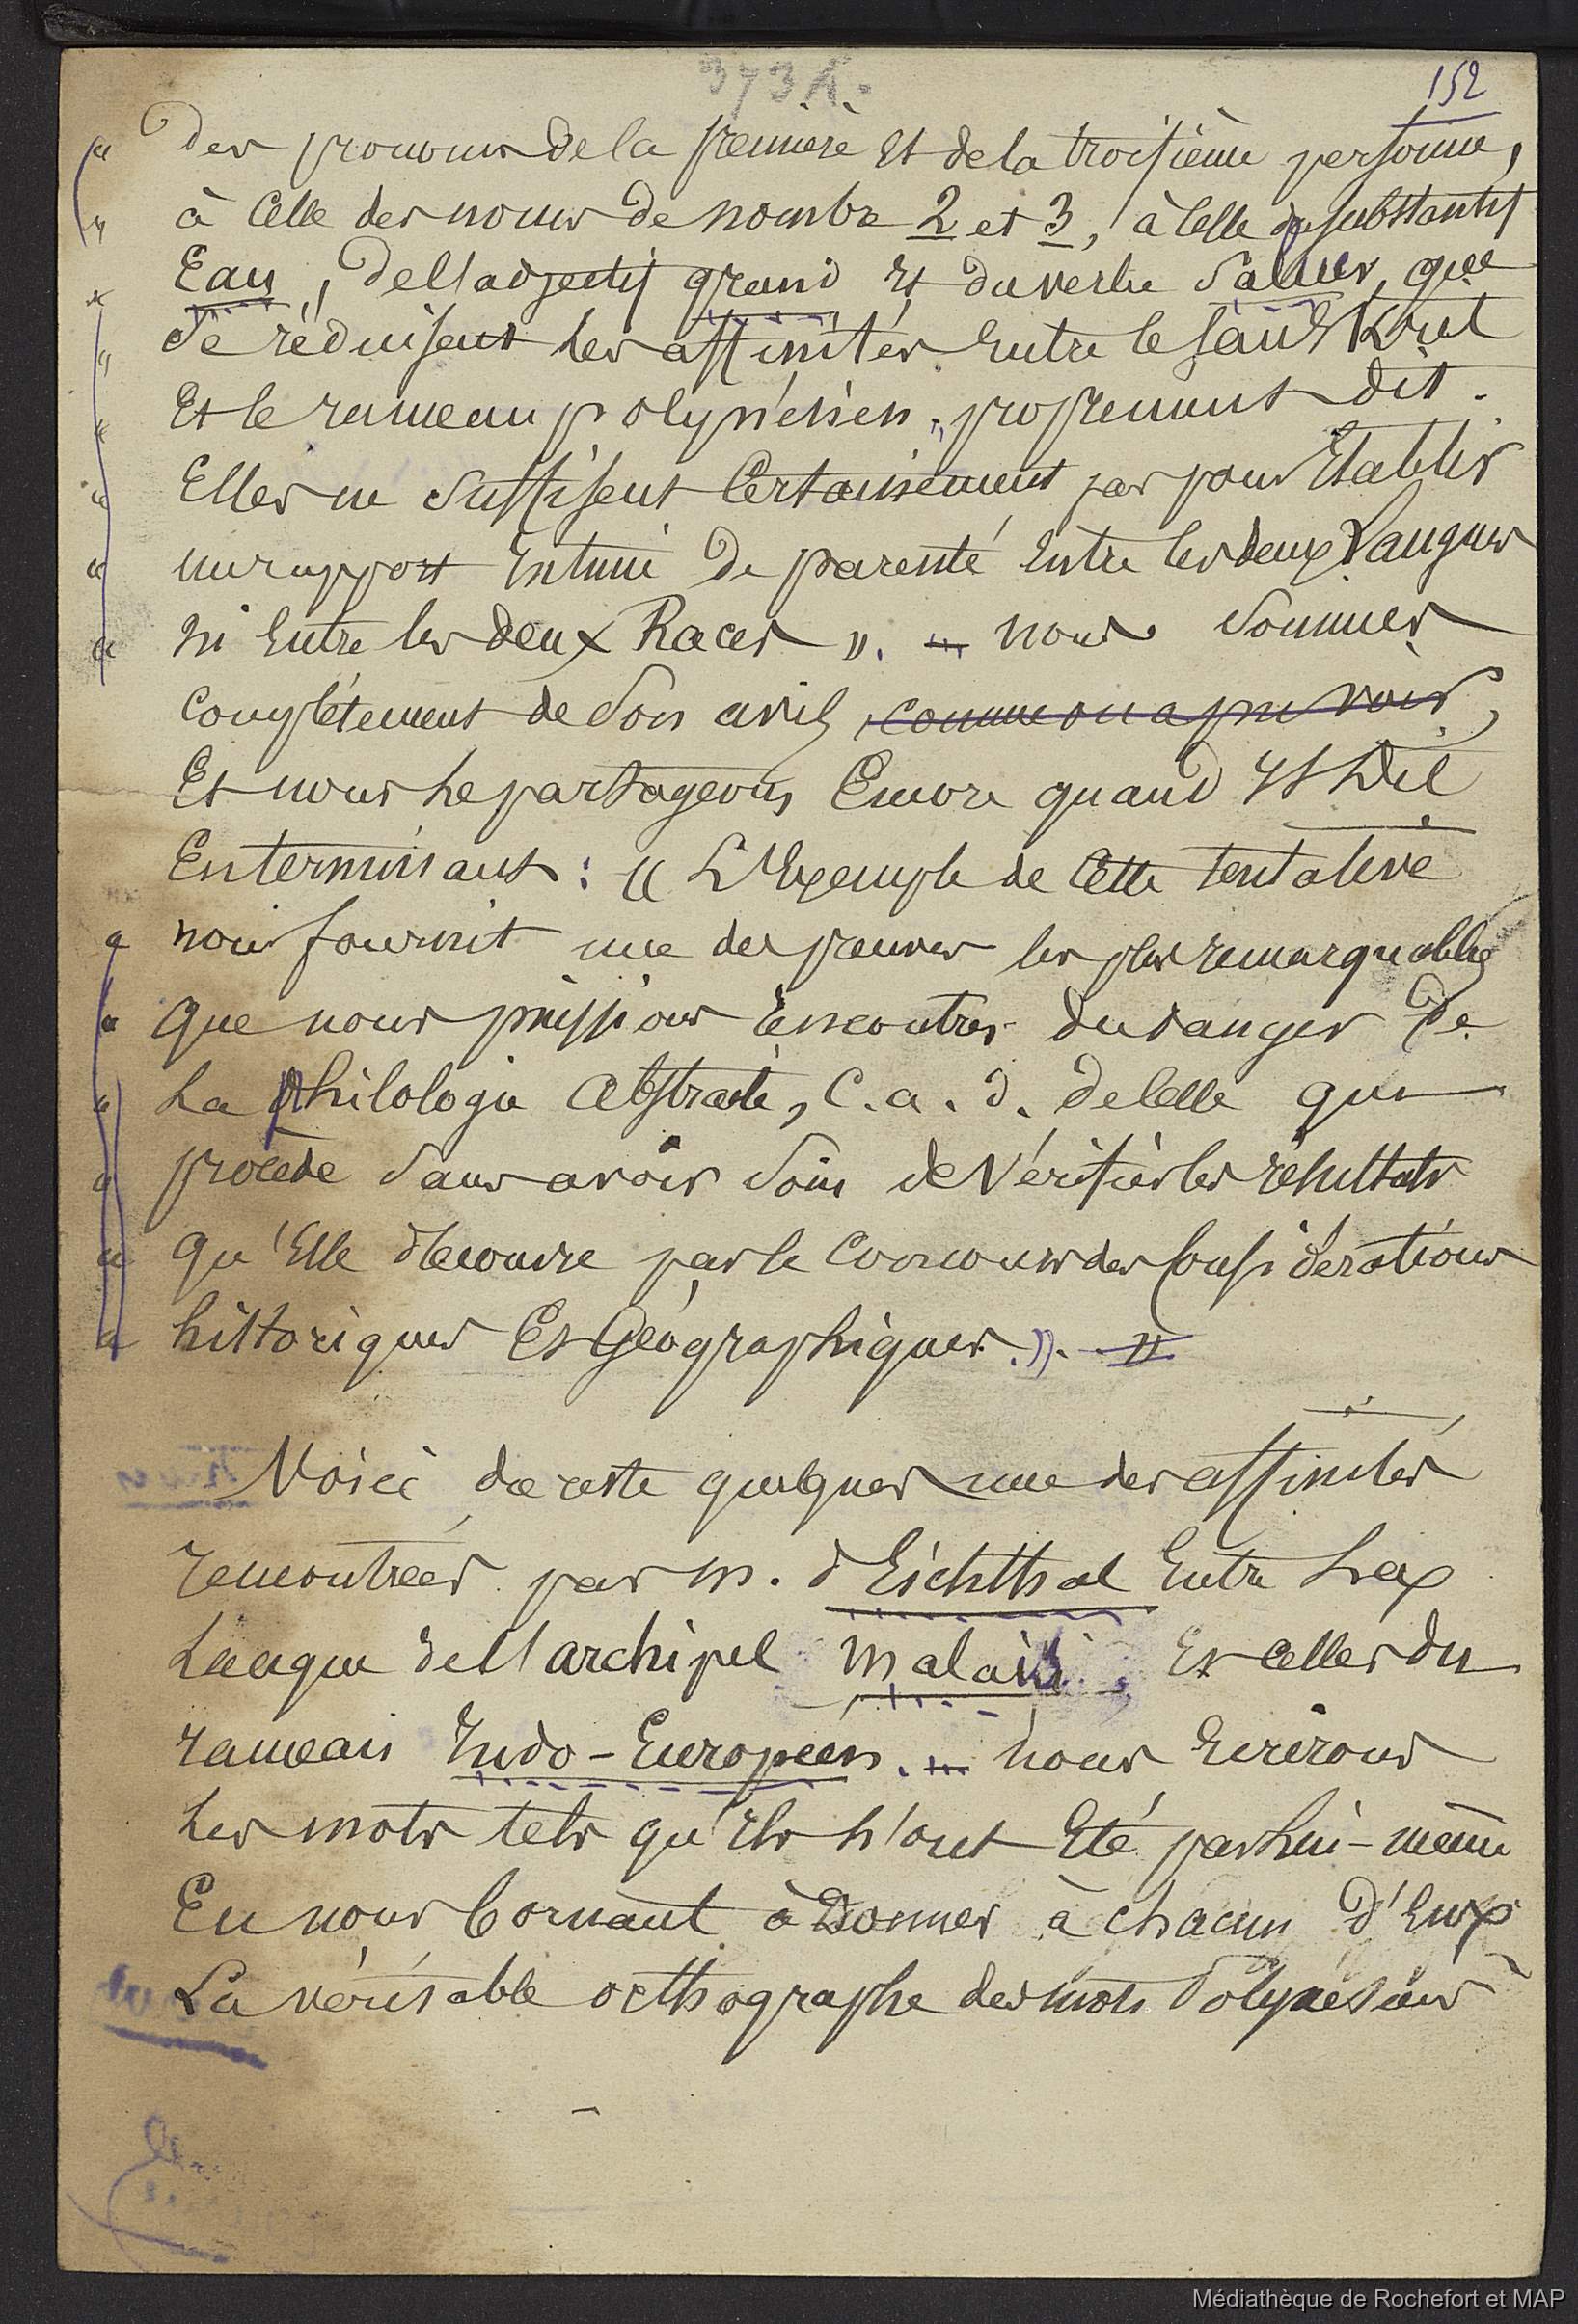 373 h.
152
« des pronoms de la première et de la troisième personne,
« à celle des noms de nombre 2 et 3, à celle du substantif
« Eau, de l'adjectif grand et du verbe saluer, que
« se réduisent les affinités entre le sanskrit
« Et le rameau polynésien proprement dit.
« Elles ne suffisent certainement pas pour établir
« un rapport intime de parenté entre les deux langues
« ni entre les deux Races ». – nous sommes
complètement de son avis, comme on a pu voir,
Et nous le partageons Encore quand il dit
En terminant : « L'Exemple de cette tentative
« nous fournit une des preuves les plus remarquables
« que nous puissions rencontrer du danger de
« La philologie abstraite, c. a. d. de celle qui
« procède sans avoir soin de vérifier les résultats
« qu'Elle découvre par le concours des considérations
« historiques Et Géographiques. ». –
Voici du reste quelques une des affinités
rencontrées par m. d'Eichthal Entre les
Langue de l'archipel malais, Et celles du
rameau Indo-Européen. – nous Ecrirons
Les mots tels qu'ils l'ont Eté par lui-même
En nous bornant à Donner à chacun d'Eux
La véritable orthographe des mots Polynésiens
Médiathèque de Rochefort et MAP